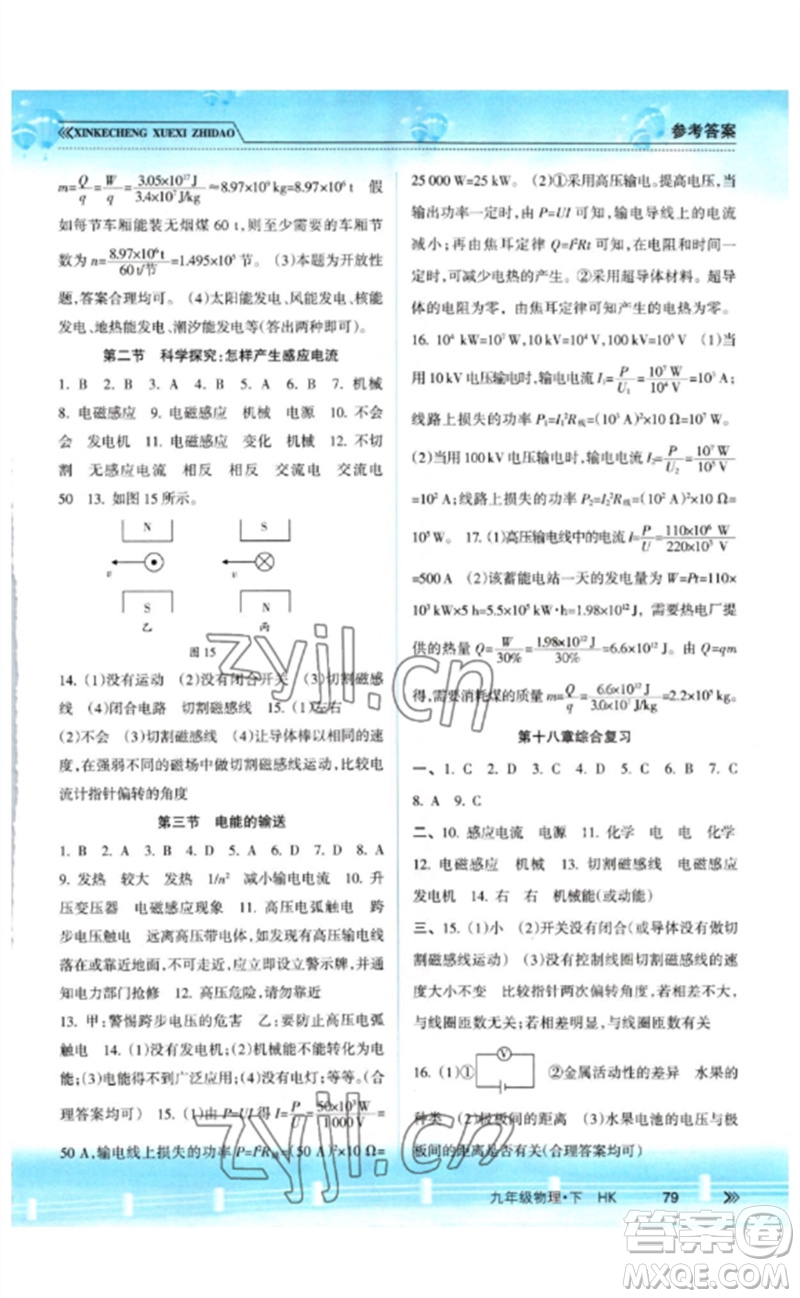 XINKECHENG XUEXI ZHIDAO
参考答案
m=Q/q=W/q=3.05×10¹⁷J/3.4×10⁷J/kg≈8.97×10⁹ kg=8.97×10⁶ t 假
如每节车厢能装无烟煤 60 t,则至少需要的车厢节
数为 n=8.97×10⁶t/60 t/节=1.495×10⁵ 节。 (3)本题为开放性
题,答案合理均可。 (4)太阳能发电、风能发电、核能
发电、地热能发电、潮汐能发电等(答出两种即可)。
第二节 科学探究:怎样产生感应电流
1. B 2. B 3. A 4. C 5. B 6. D 7. 机械
8. 电磁感应 9. 电磁感应 机械 电源 10. 不会
会 发电机 11. 电磁感应 变化 机械 12. 不切
割 无感应电流 相反 相反 交流电 交流电
50 13. 如图 15 所示。
N
S
v
v
S
N
乙
丙
图 15
14. (1)没有运动 (2)没有闭合开关 (3)切割磁感
线 (4)闭合电路 切割磁感线 15. (1)左右
(2)不会 (3)切割磁感线 (4)让导体棒以相同速度
在强弱不同的磁场中做切割磁感线运动,比较电
流计指针偏转的角度
第三节 电能的输送
1. B 2. A 3. B 4. D 5. A 6. D 7. D 8. A
9. 发热 较大 发热 1/n² 减小输电电流 10. 升
压变压器 电磁感应现象 11. 高压电弧触电 跨
步电压触电 远离高压带电体,如发现高压输电线
落在或断在地面处,应立即设立警示牌,并及时通
知电力部门抢修 12. 高压危险,请勿靠近
13. 甲:警惕跨步电压的危害 乙:要防止高压电弧
触电 14. (1)没有发电机;(2)机械能不能转化为电
能;(3)电能得不到广泛应用;(4)没有电灯;等等。(合
理答案均可) 15. (1)由 P=UI 得 I=P/U=50×10³W/1 000 V=
50 A,输电线上损失的功率 P=I²R线=(50 A)²×10 Ω=
25 000 W=25 kW。 (2)①采用高压输电。提高电压,当
输出功率一定时,由 P=UI 可知,输电导线上的电流
减小;再由焦耳定律 Q=I²Rt 可知,在电阻和时间一
定时,可减少电热的产生。②采用超导体材料。超导
体的电阻为零,由焦耳定律可知产生的电热为零。
16. 10⁴ kW=10⁷ W,10 kV=10⁴ V,100 kV=10⁵ V (1)当
用 10 kV 电压输电时,输电电流 I₁=P/U₁=10⁷W/10⁴V=10³ A;
线路上损失的功率 P₁=I₁²R线=(10³ A)²×10 Ω=10⁷ W。
(2)当用 100 kV 电压输电时,输电电流 I₂=P/U₂=10⁷W/10⁵V
=10² A;线路上损失的功率 P₂=I₂²R线=(10² A)²×10 Ω=
10⁵ W。 17. (1)高压输电线中的电流 I=P/U=110×10⁶ W/220×10³ V
=500 A (2)该蓄能电站一天的发电量为 W=Pt=110×
10³ kW×5 h=5.5×10⁵ kW·h=1.98×10¹² J, 需要热电厂提
供的热量 Q=W/30%=1.98×10¹² J/30%=6.6×10¹² J, 由 Q=qm
得,需要消耗煤的质量 m=Q/q=6.6×10¹² J/3.0×10⁷ J/kg=2.2×10⁵ kg。
第十八章综合复习
一、1. C 2. D 3. D 4. C 5. C 6. B 7. C
8. A 9. C
二、10. 感应电流 电源 11. 化学 电 电 化学
12. 电磁感应 机械 13. 切割磁感线 电磁感应
发电机 14. 右 右 机械能(或动能)
三、15. (1)小 (2)开关没有闭合(或导体没有做切
割磁感线运动) (3)没有控制线圈切割磁感线的速
度大小不变 比较指针两次偏转角度,若基本相同,
与线圈匝数无关;若相差明显,与线圈匝数有关
16. (1)① V ②金属活动性的差异 水果的
种类 (2)极板间的距离 (3)水果电池的电压与极
板间的距离是否有关(合理答案均可)
九年级物理·下 HK 79
zyjl.cn
zyjl.cn
答案圈
MXQE.COM